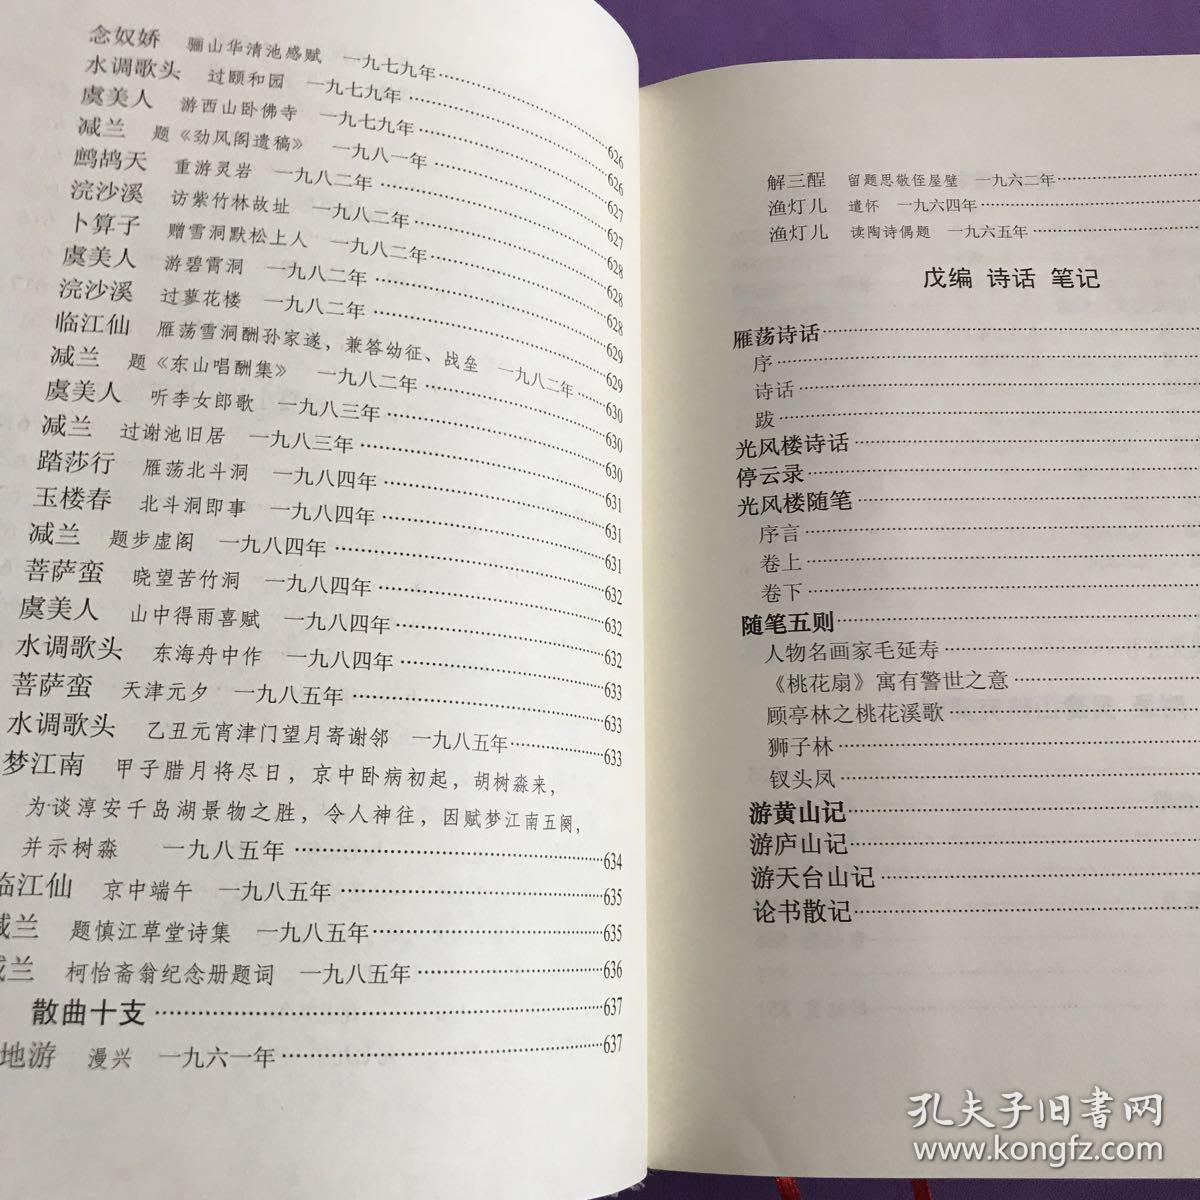 念奴娇 骊山华清池感赋 一九七九年
水调歌头 过颐和园 一九七九年 626
虞美人 游西山卧佛寺 一九七九年 626
减兰 题《劲风阁遗稿》 一九八一年 627
鹧鸪天 重游灵岩 一九八二年 627
浣沙溪 访紫竹林故址 一九八二年 628
卜算子 赠雪洞默松上人 一九八二年 628
虞美人 游碧霄洞 一九八二年 628
浣沙溪 过蓼花楼 一九八二年 629
临江仙 雁荡雪洞酬孙家遂，兼答幼征、战垒 一九八二年 629
减兰 题《东山唱酬集》 一九八二年 630
虞美人 听李女郎歌 一九八三年 630
减兰 过谢池旧居 一九八三年 630
踏莎行 雁荡北斗洞 一九八四年 631
玉楼春 北斗洞即事 一九八四年 631
减兰 题步虚阁 一九八四年 631
菩萨蛮 晓望苦竹洞 一九八四年 632
虞美人 山中得雨喜赋 一九八四年 632
水调歌头 东海舟中作 一九八四年 632
菩萨蛮 天津元夕 一九八五年 633
水调歌头 乙丑元宵津门望月寄谢邻 一九八五年 633
梦江南 甲子腊月将尽日，京中卧病初起，胡树淼来，
为谈淳安千岛湖景物之胜，令人神往，因赋梦江南五阕，
并示树淼 一九八五年 634
临江仙 京中端午 一九八五年 635
减兰 题慎江草堂诗集 一九八五年 635
减兰 柯怡斋翁纪念册题词 一九八五年 636
散曲十支 637
地游 漫兴 一九六一年 637
解三酲 留题思敬侄屋壁 一九六二年
渔灯儿 遣怀 一九六四年
渔灯儿 读陶诗偶题 一九六五年
戊编 诗话 笔记
雁荡诗话
序
诗话
跋
光风楼诗话
停云录
光风楼随笔
序言
卷上
卷下
随笔五则
人物名画家毛延寿
《桃花扇》寓有警世之意
顾亭林之桃花溪歌
狮子林
钗头凤
游黄山记
游庐山记
游天台山记
论书散记
孔夫子旧书网
www.kongfz.com